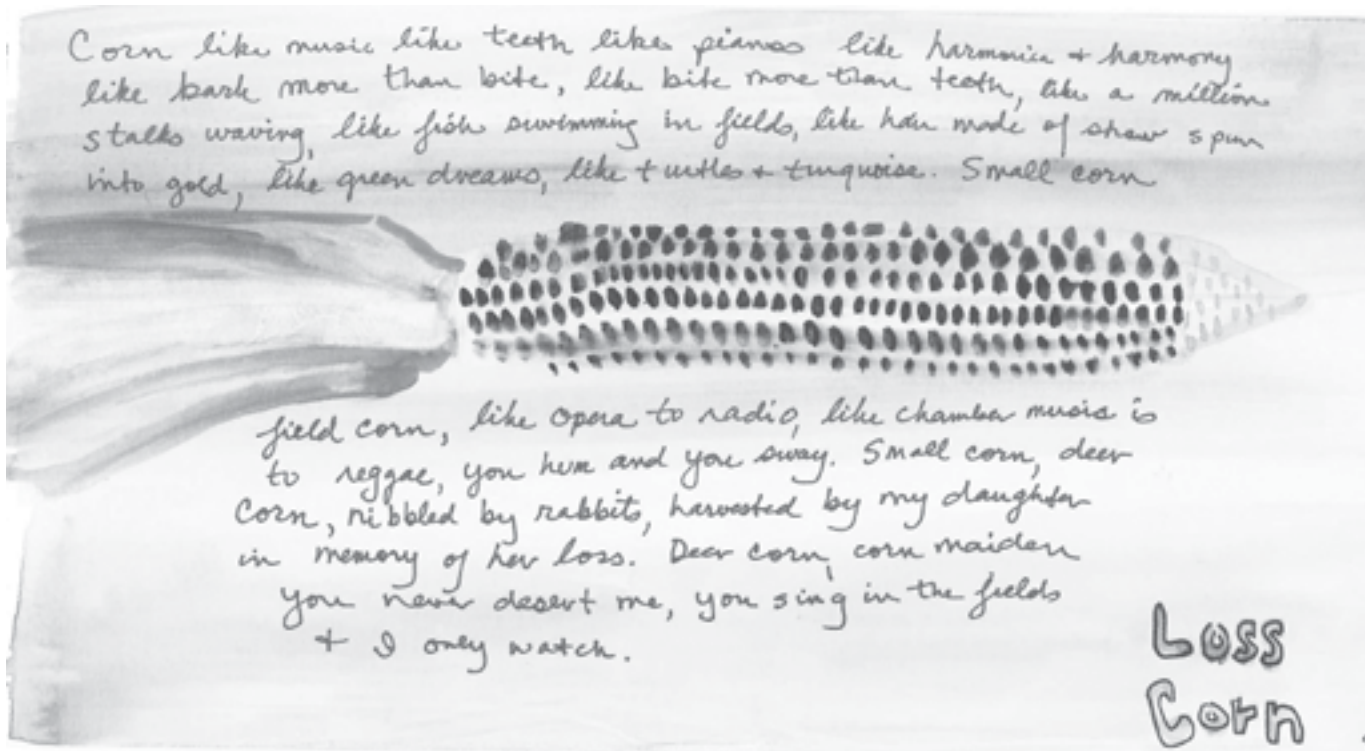 Corn like music like teeth like pianos like harmonica + harmony
like bark more than bite, like bite more than teeth, like a million
stalks waving, like fish swimming in fields, like hair made of straw spun
into gold, like green dreams, like turtles + turquoise. Small corn
field corn, like opera to radio, like chamber music is
to reggae, you hum and you sway. Small corn, deer
corn, nibbled by rabbits, harvested by my daughter
in memory of her loss. Deer corn, corn maiden
you never desert me, you sing in the fields
+ I only watch.
Loss
Corn